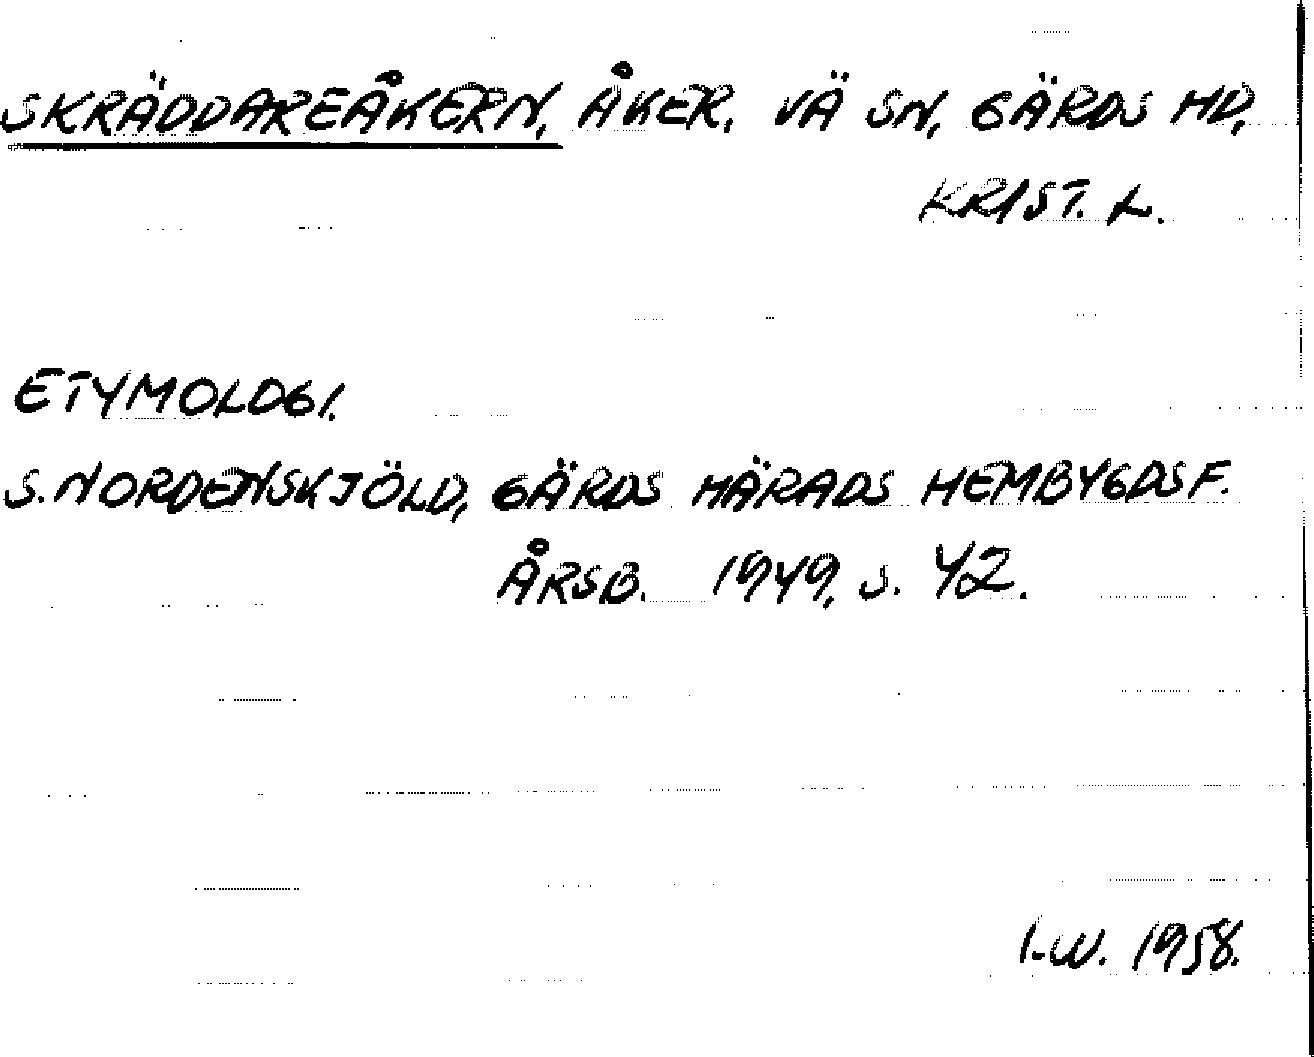 SKRÄDDAREÅKERN, ÅKER. VÄ SN, GÄRDS HD,
KRIST. L.
ETYMOLOGI.
S. NORDENSKJÖLD, GÄRDS HÄRADS HEMBYGDSF.
ÅRSB. 1949, S. 42.
I.W. 1958.